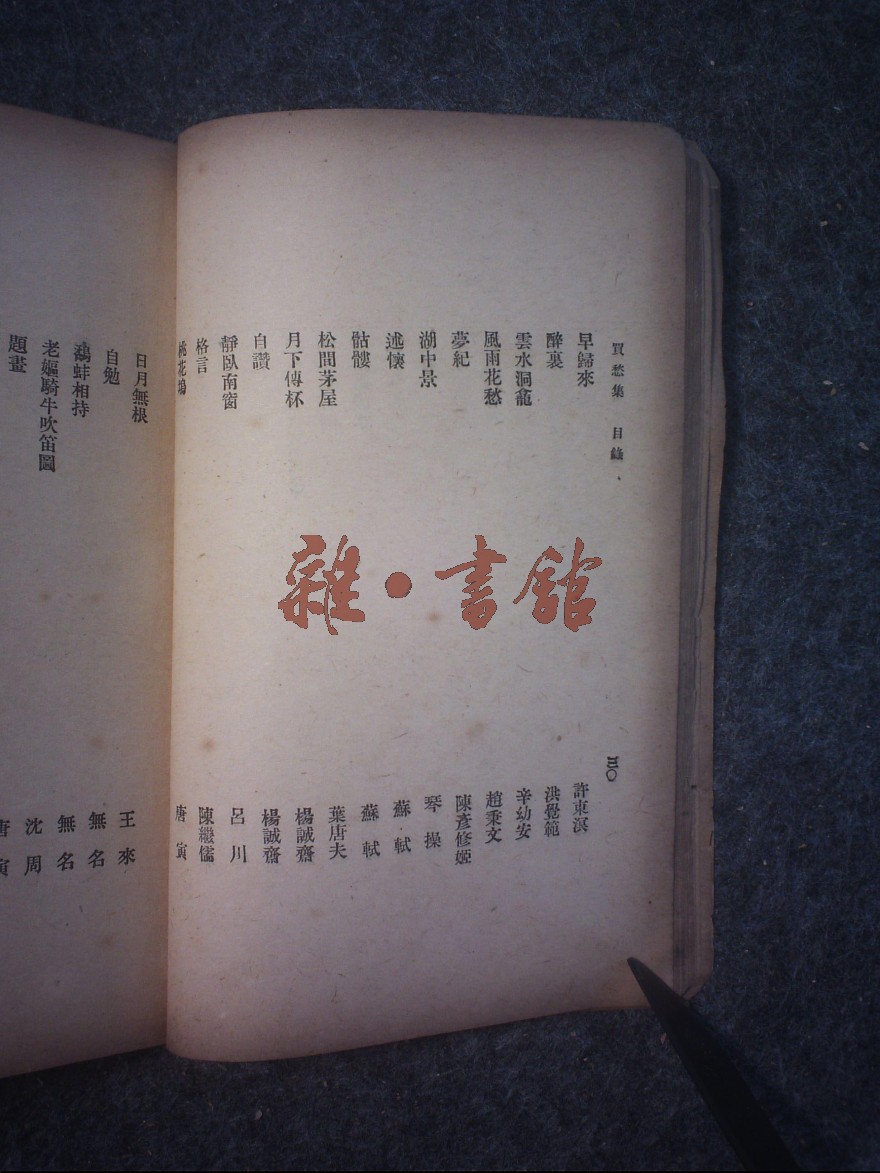 買愁集　目錄　三〇
早歸來　許東溟
醉裏　洪覺範
雲水洞龕　辛幼安
風雨花愁　趙秉文
夢紀　陳彥修姬
湖中景　琴操
述懷　蘇軾
骷髏　蘇軾
松間茅屋　葉唐夫
月下傳杯　楊誠齋
自讚　楊誠齋
靜臥南窗　呂川
格言　陳繼儒
桃花塢　唐寅
日月無根　王來
自勉　無名
鷸蚌相持　無名
老嫗騎牛吹笛圖　沈周
題畫　唐寅
雜·書館